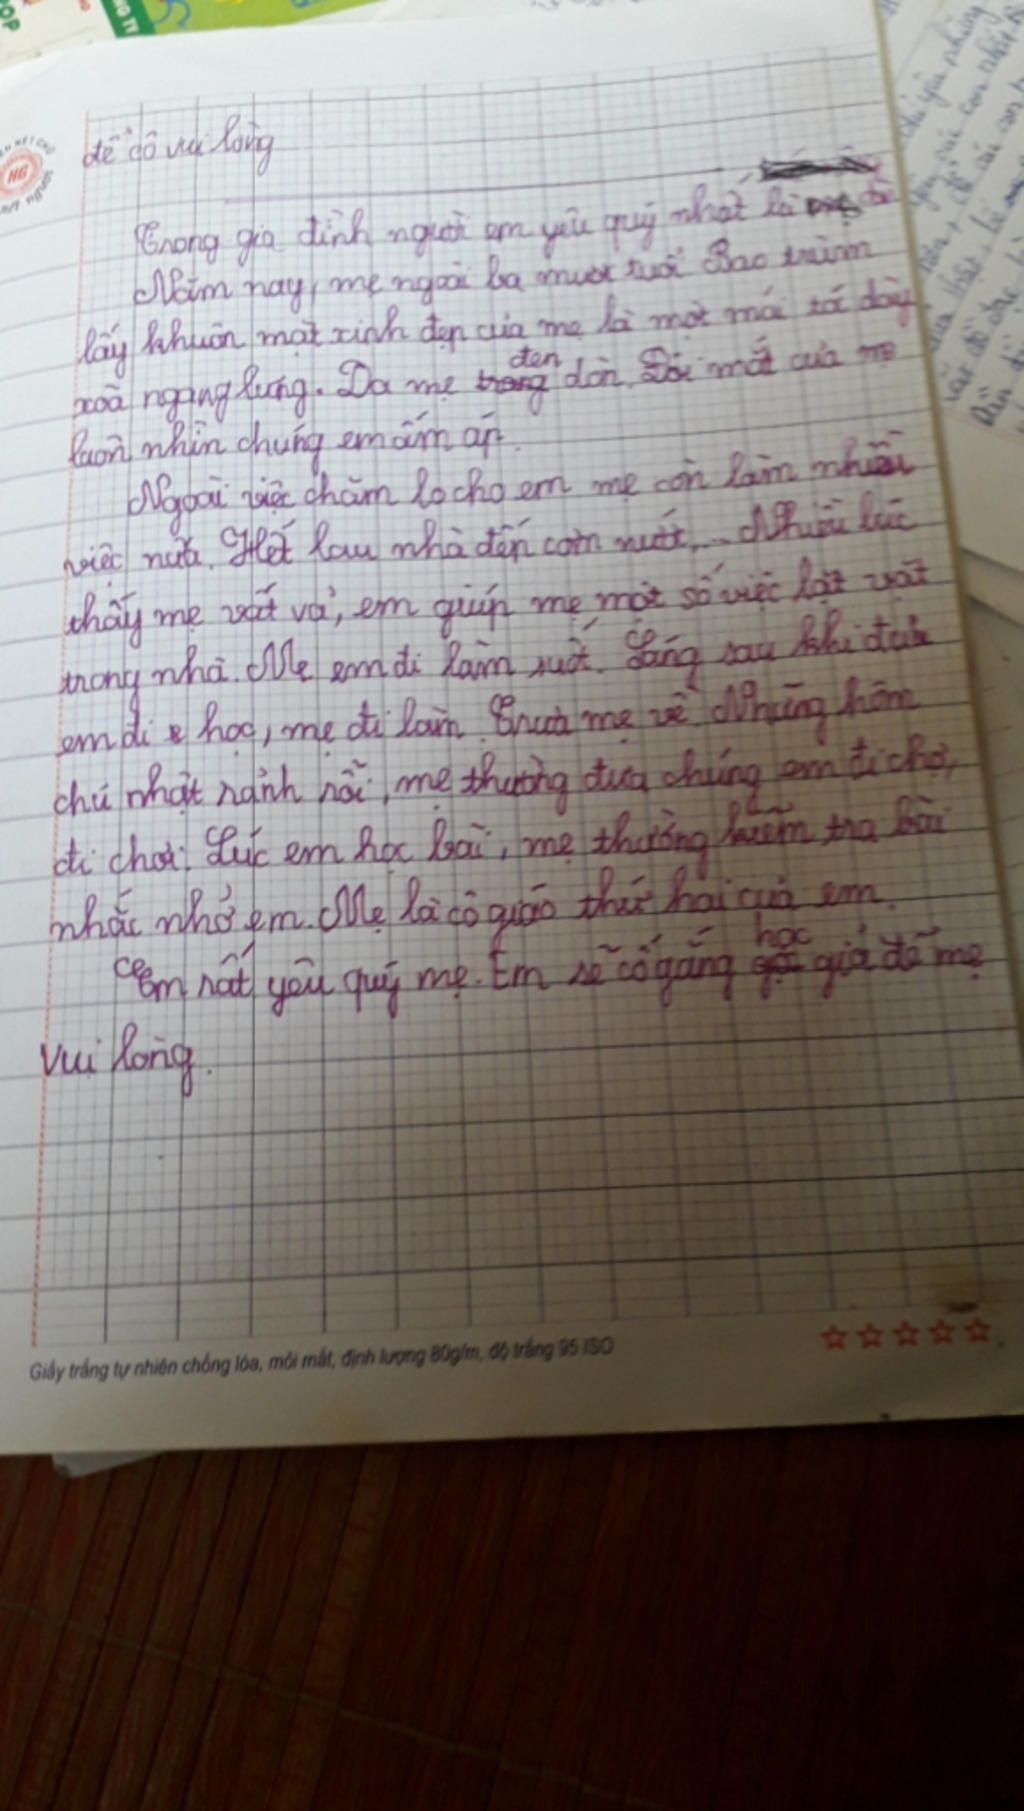 OP
NG TY
NG
để cô vui lòng
Trong gia đình người em yêu quý nhất là
Năm nay, mẹ ngoài ba mươi tuổi Bao trùm
lấy khuôn mặt xinh đẹp của mẹ là một mái tóc dày
xoã ngang lưng. Da mẹ trong đen dòn. Đôi mắt của mẹ
luôn nhìn chúng em ấm áp.
Ngoài việc chăm lo cho em mẹ còn làm nhiều
việc nữa. Hết lau nhà đến cơm nước,... Nhiều lúc
thấy mẹ vất vả, em giúp mẹ một số việc lặt vặt
trong nhà. Mẹ em đi làm suốt. Sáng sau khi đưa
em đi học, mẹ đi làm. Trưa mẹ về Những hôm
chủ nhật rảnh rỗi, mẹ thường đưa chúng em đi chợ,
đi chơi. Lúc em học bài, mẹ thường kiểm tra bài
nhắc nhở em. Mẹ là cô giáo thứ hai của em.
Em rất yêu quý mẹ. Em sẽ cố gắng học giỏi để mẹ
vui lòng.
Giấy trắng tự nhiên chống lóa, mỏi mắt, định lượng 80g/m, độ trắng 95 ISO